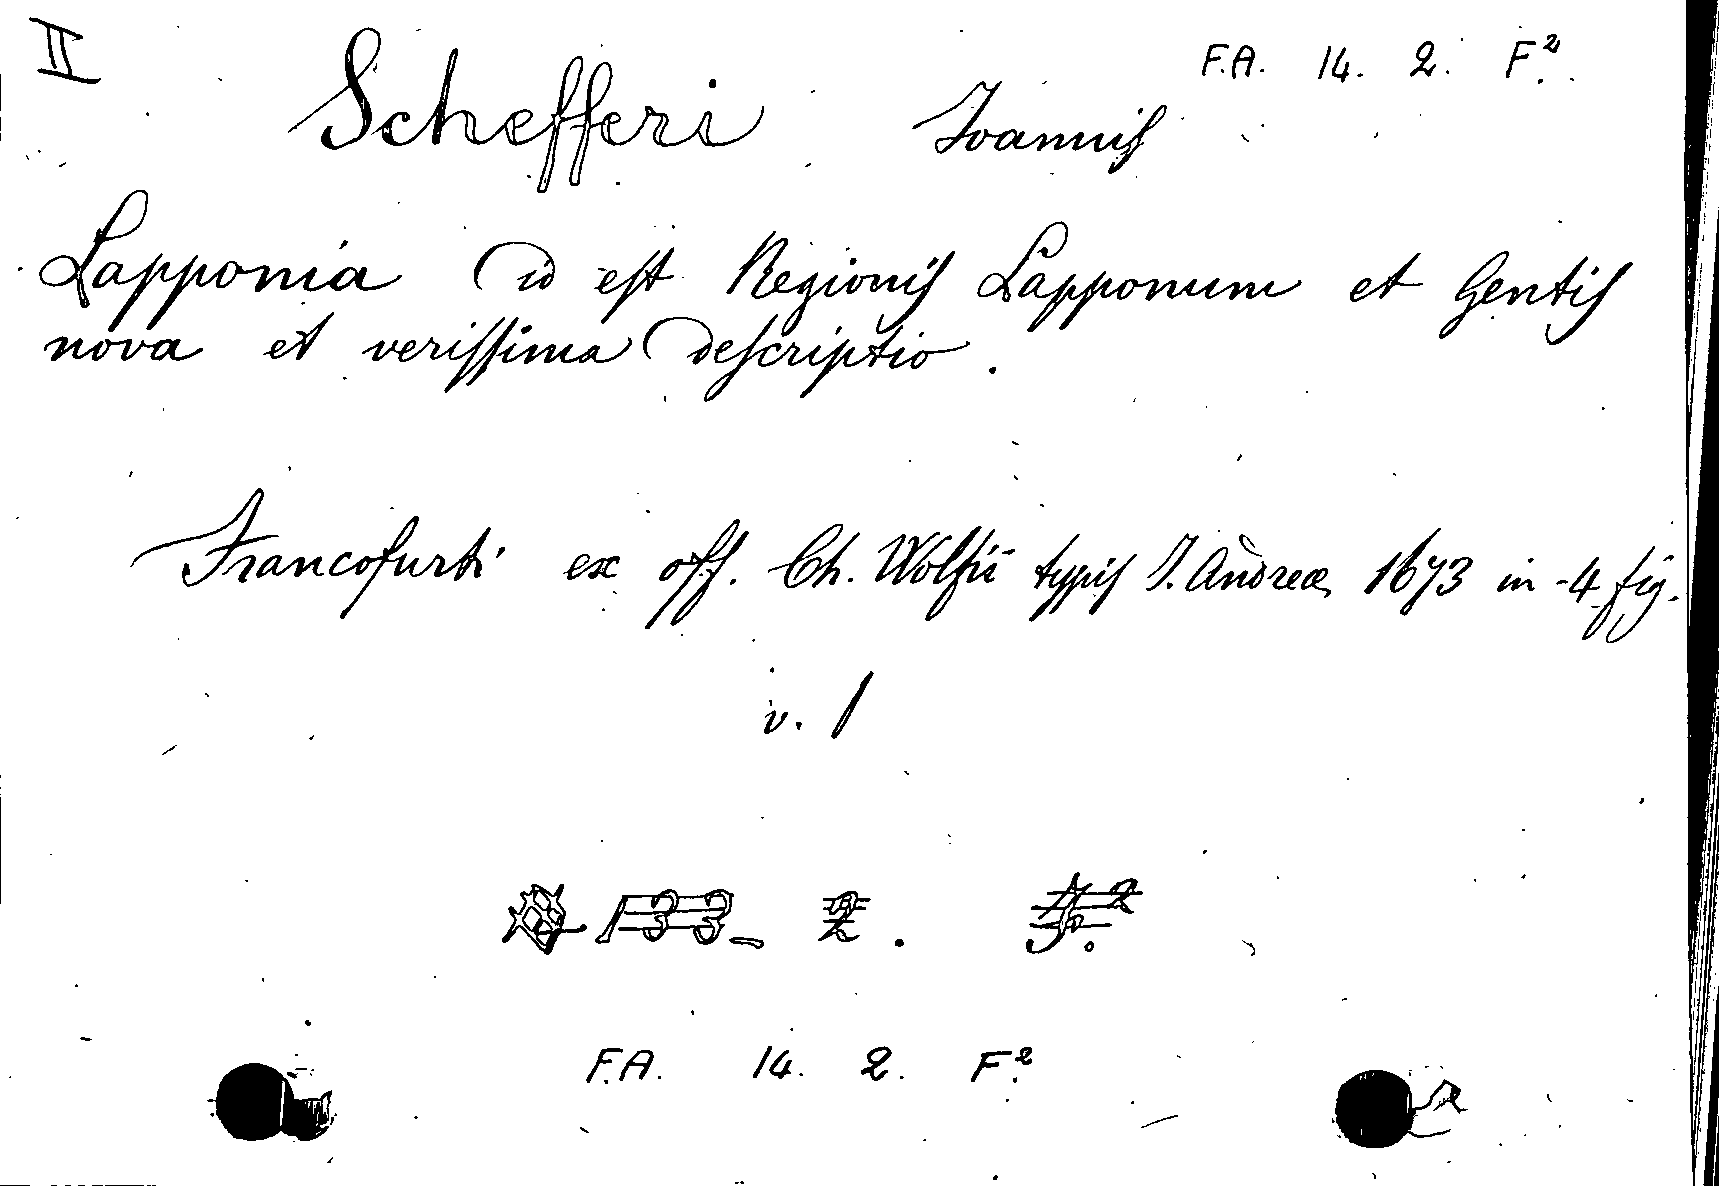 II
F.A. 14. 2. F².
Schefferi Joannis
Lapponia id est Regionis Lapponum et Gentis
nova et verissima descriptio.
Francofurti ex off. Ch. Wolfii typis J. Andreæ 1673 in-4 fig.
v. 1
133_ 2. F.²
F.A. 14. 2. F².